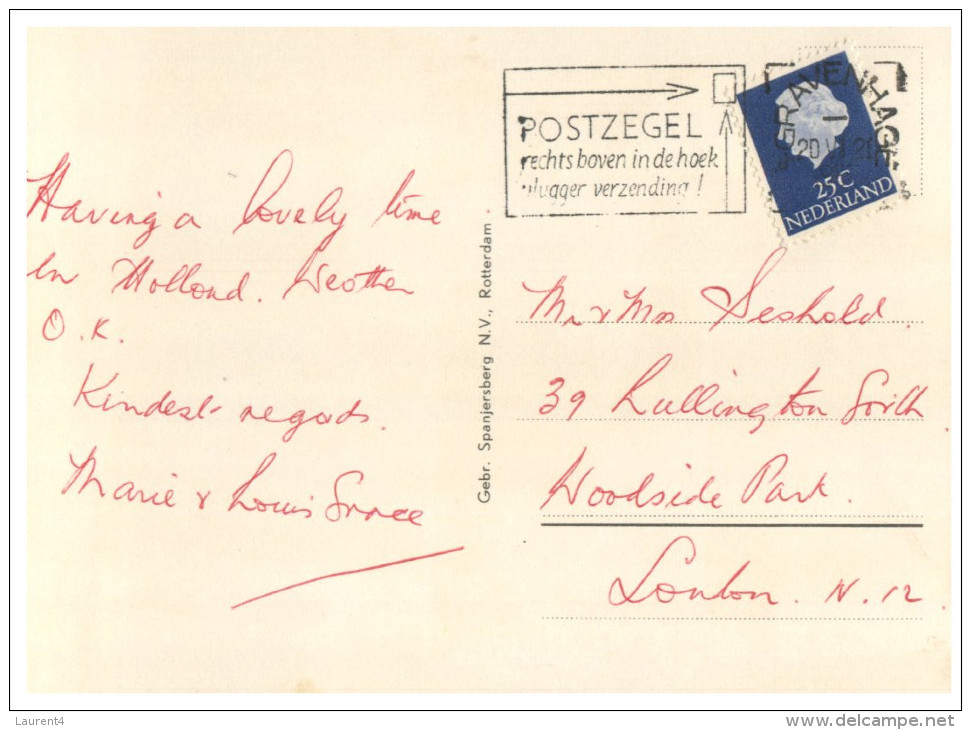 Having a lovely time
in Holland. Weather
O.K.
Kindest regards.
Marie & Louis
POSTZEGEL
rechts boven in de hoek
vlugger verzending!
GRAVENHAGE
25C
NEDERLAND
Gebr. Spanjersberg N.V., Rotterdam
Mr & Mrs
39 Lullington Garth
Woodside Park.
London. N. 12.
Laurent4
www.delcampe.net